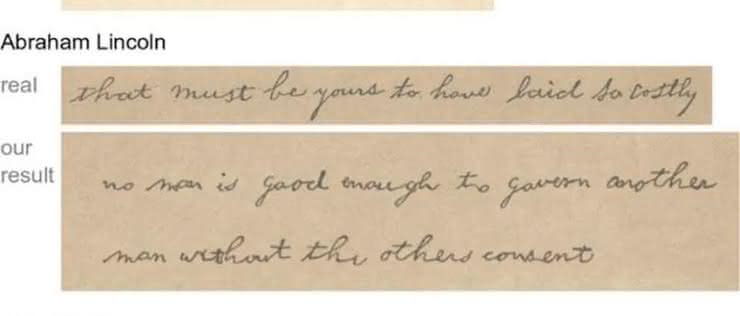 Abraham Lincoln
real
that must be yours to have laid so costly
our
result
no man is good enough to govern another
man without the others consent